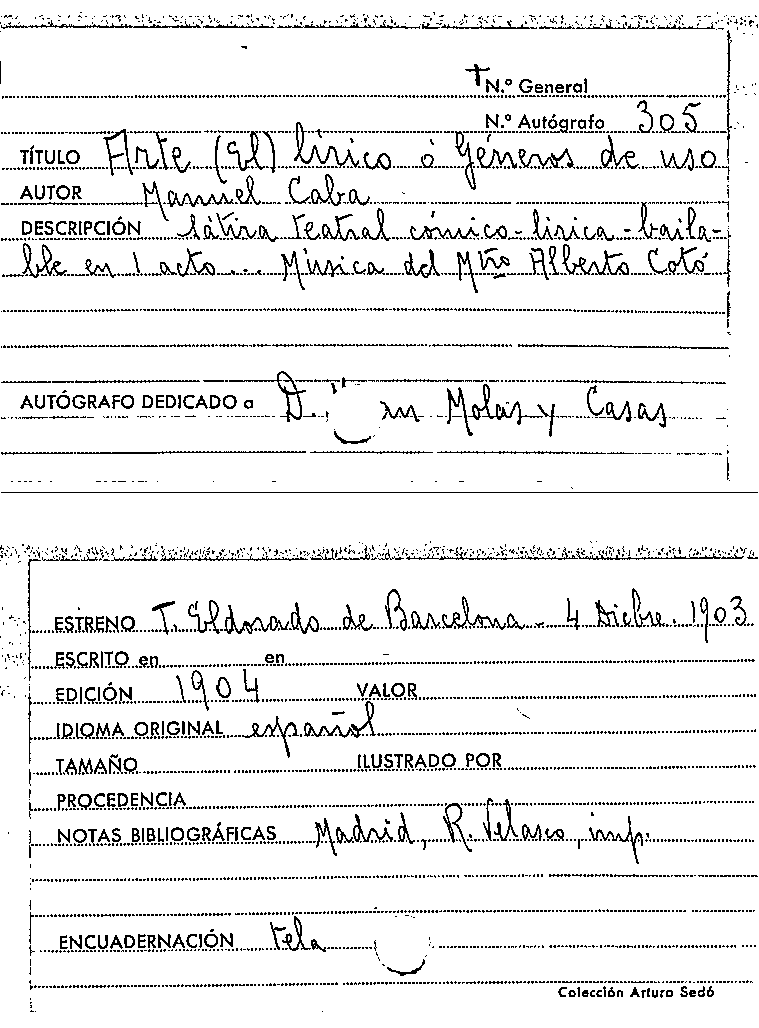 N.º General
N.º Autógrafo 305
TÍTULO Arte (El) lírico ó Géneros de uso
AUTOR Manuel Caba
DESCRIPCIÓN Sátira teatral cómico-lírica-baila-
ble en 1 acto... Música del Mtro Alberto Cotó
AUTÓGRAFO DEDICADO a D. Molas y Casas
ESTRENO T. Eldorado de Barcelona - 4 Dicbre. 1903
ESCRITO en en -
EDICIÓN 1904 VALOR
IDIOMA ORIGINAL español
TAMAÑO ILUSTRADO POR
PROCEDENCIA
NOTAS BIBLIOGRÁFICAS Madrid, R. Velasco, imp.
ENCUADERNACIÓN tela
Colección Arturo Sedó